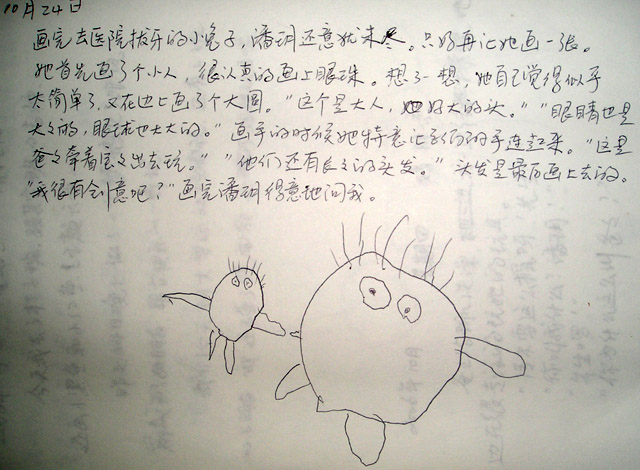 10月24日
画完去医院拔牙的小兔子，潘玥还意犹未尽。只好再让她画一张。
她首先画了个小人，很认真的画上眼珠。想了一想，她自己觉得似乎
太简单了，又在边上画了个大圆。“这个是大人，她好大的头。”“眼睛也是
大大的，眼球也大大的。”画手的时候她特意让他们的手连起来。“这是
爸爸牵着宝宝出去玩。”“他们还有长长的头发。”头发是最后画上去的。
“我很有创意吧？”画完潘玥得意地问我。